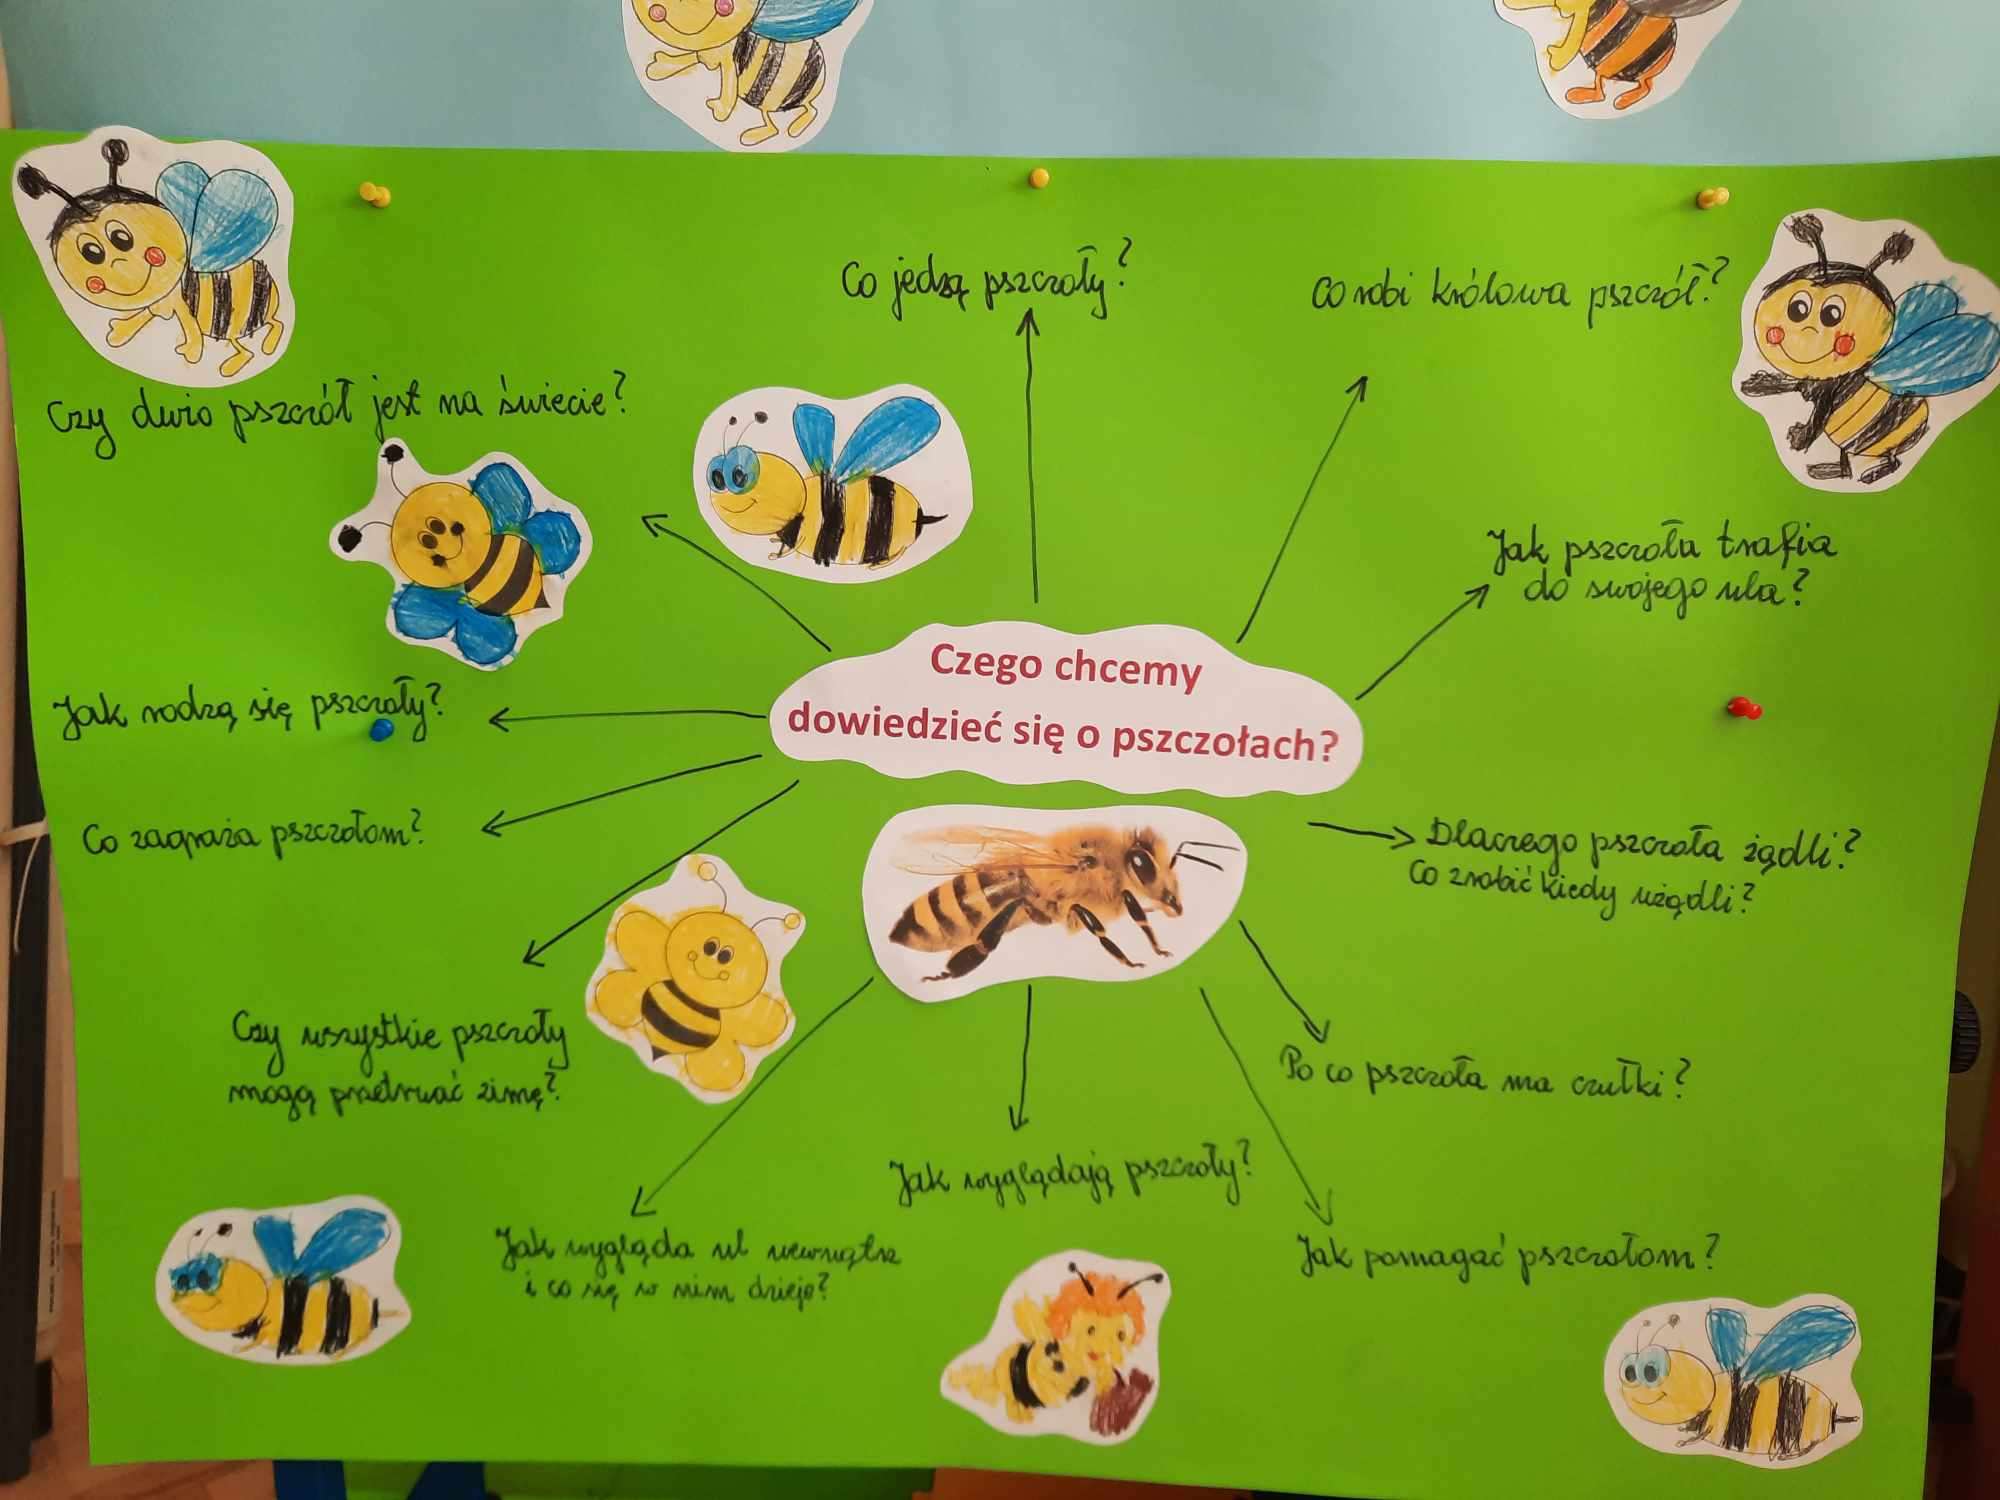 Co jedzą pszczoły?
Co robi królowa pszczół?
Czy dużo pszczół jest na świecie?
Jak pszczoła trafia
do swojego ula?
Czego chcemy
dowiedzieć się o pszczołach?
Jak rodzą się pszczoły?
Co zagraża pszczołom?
Dlaczego pszczoła żądli?
Co zrobić kiedy użądli?
Czy wszystkie pszczoły
mogą przetrwać zimę?
Po co pszczoła ma czułki?
Jak wyglądają pszczoły?
Jak wygląda ul wewnątrz
i co się w nim dzieje?
Jak pomagać pszczołom?